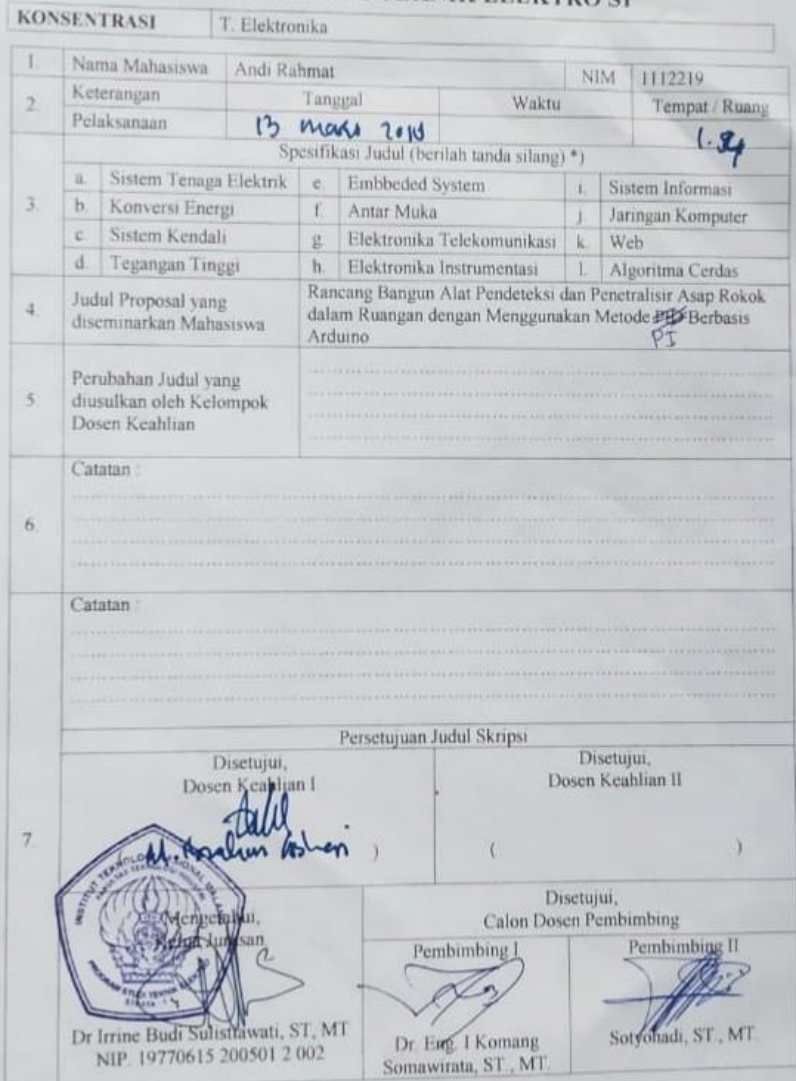 KONSENTRASI T. Elektronika
1. Nama Mahasiswa Andi Rahmat NIM 1112219
2. Keterangan Pelaksanaan Tanggal Waktu Tempat / Ruang
13
3. Spesifikasi Judul (berilah tanda silang) *)
a. Sistem Tenaga Elektrik e. Embbeded System i. Sistem Informasi
b. Konversi Energi f. Antar Muka j. Jaringan Komputer
c. Sistem Kendali g. Elektronika Telekomunikasi k. Web
d. Tegangan Tinggi h. Elektronika Instrumentasi l. Algoritma Cerdas
4. Judul Proposal yang diseminarkan Mahasiswa
Rancang Bangun Alat Pendeteksi dan Penetralisir Asap Rokok
dalam Ruangan dengan Menggunakan Metode PID Berbasis
Arduino
PI
5. Perubahan Judul yang
diusulkan oleh Kelompok
Dosen Keahlian
6. Catatan :
7. Catatan :
Persetujuan Judul Skripsi
Disetujui,
Dosen Keahlian I
Disetujui,
Dosen Keahlian II
)
( )
INSTITUT TEKNOLOGI NASIONAL MALANG
FAKULTAS TEKNOLOGI INDUSTRI
Mengetahui,
Ketua Jurusan
Dr Irrine Budi Sulistiawati, ST, MT
NIP. 19770615 200501 2 002
Disetujui,
Calon Dosen Pembimbing
Pembimbing I
Dr. Eng. I Komang
Somawirata, ST., MT.
Pembimbing II
Sotyohadi, ST., MT.